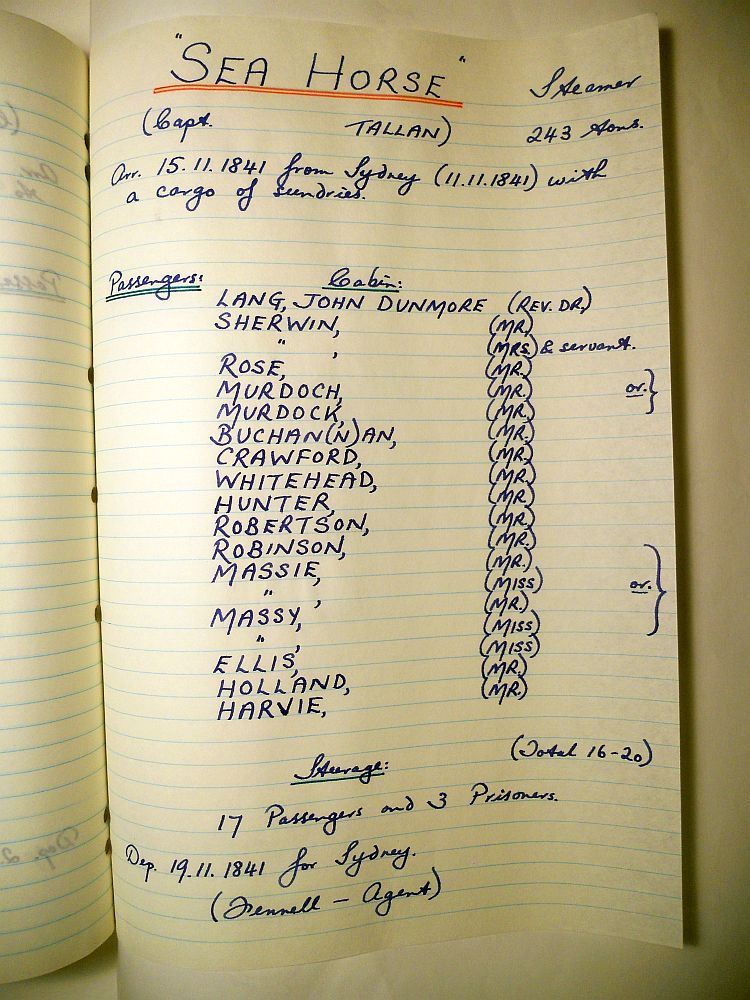 "SEA HORSE" Steamer
(Capt. TALLAN) 243 tons.
Arr. 15.11.1841 from Sydney (11.11.1841) with
a cargo of sundries.
Passengers: Cabin:
LANG, JOHN DUNMORE (REV. DR.)
SHERWIN, (MR.)
" , (MRS.) & servant.
ROSE, (MR.)
MURDOCH, (MR.) or. }
MURDOCK, (MR.)
BUCHAN(N)AN, (MR.)
CRAWFORD, (MR.)
WHITEHEAD, (MR.)
HUNTER, (MR.)
ROBERTSON, (MR.)
ROBINSON, (MR.)
MASSIE, (MR.)
" , (MISS) or. }
MASSY, (MR.)
" , (MISS)
ELLIS, (MISS)
HOLLAND, (MR.)
HARVIE, (MR.)
(Total 16-20)
Steerage:
17 Passengers and 3 Prisoners.
Dep. 19.11.1841 for Sydney.
(Fennell - Agent)